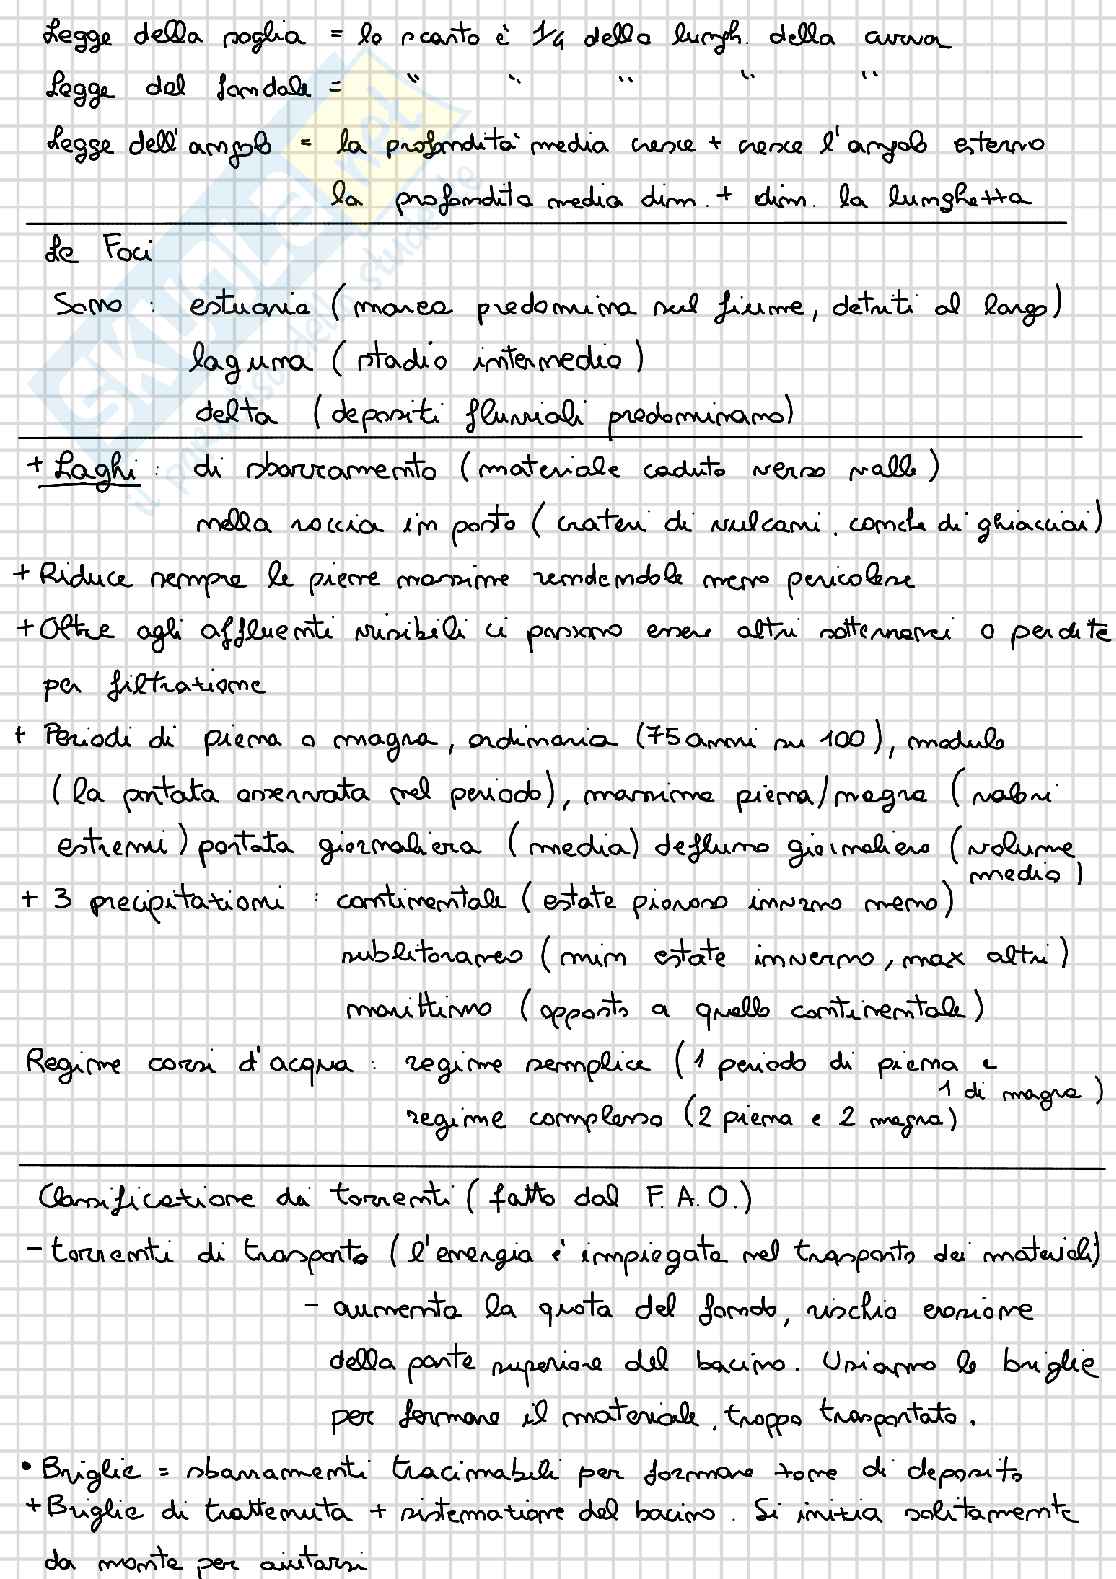 Legge della soglia = lo scarto è 1/4 della lungh. della curva
Legge del fondale = " " " " "
Legge dell'angolo = la profondità media cresce + cresce l'angolo esterno
la profondità media dim. + dim. la lunghezza
Le Foci
Sono : estuario (marea predomina sul fiume, detriti al largo)
laguna (stadio intermedio)
delta (depositi fluviali predominano)
+ Laghi : di sbarramento (materiale caduto verso valle)
nella roccia in posto (crateri di vulcani, conche di ghiacciai)
+ Riduce sempre le piene massime rendendole meno pericolose
+ Oltre agli affluenti visibili ci possono essere altri sotterranei o perdite
per filtrazione
+ Periodi di piena o magra, ordinaria (75 anni su 100), modulo
(la portata osservata nel periodo), massima piena/magra (valori
estremi) portata giornaliera (media) deflusso giornaliero (volume
medio)
+ 3 precipitazioni : continentale (estate piovoso inverno meno)
sublitoraneo (min estate inverno, max altri)
marittimo (opposto a quello continentale)
Regime corsi d'acqua : regime semplice (1 periodo di piena e
1 di magra)
regime complesso (2 piena e 2 magra)
Classificazione dei torrenti (fatto dal F.A.O.)
- torrenti di trasporto (l'energia è impiegata nel trasporto dei materiali)
- aumenta la quota del fondo, rischio erosione
della parte superiore del bacino. Usiamo le briglie
per fermare il materiale, troppo trasportato.
• Briglie = sbarramenti tracimabili per formare zone di deposito
+ Briglie di trattenuta + sistemazione del bacino. Si inizia solitamente
da monte per aiutarsi
SKUOLA.net